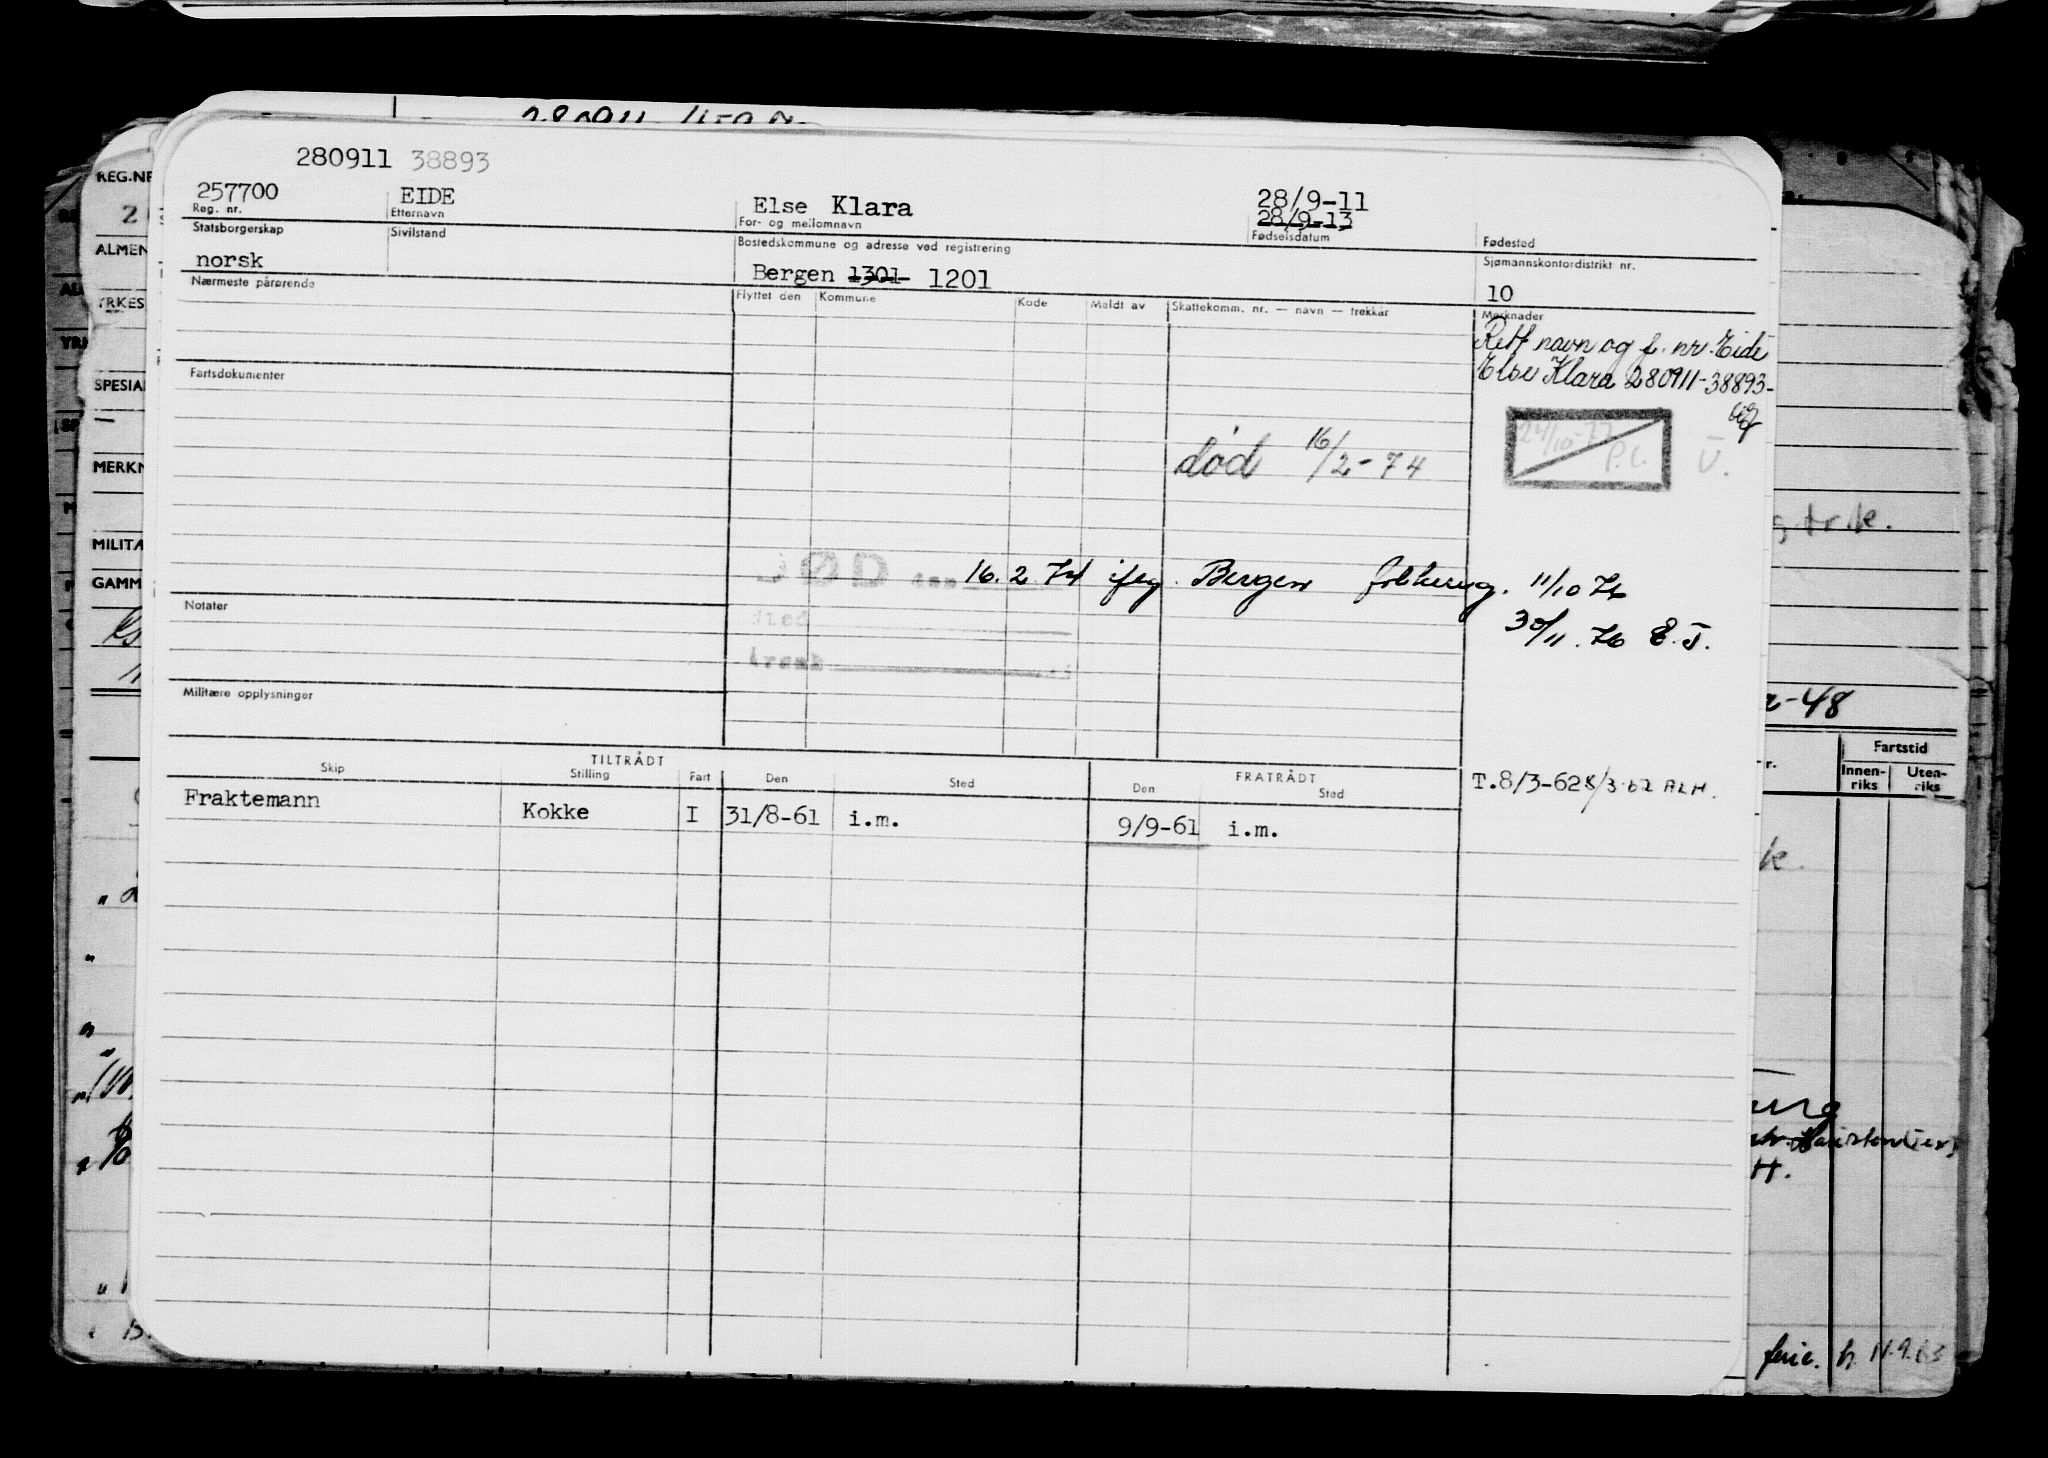 280911 38893
257700 EIDE Else Klara 28/9-11
28/9-13
Reg. nr. Etternavn For- og mellomnavn Fødselsdatum Fødested
Statsborgerskap Sivilstand Bostedskommune og adresse ved registrering Sjømannskontordistrikt nr.
norsk Bergen 1301 1201 10
Nærmeste pårørende Flyttet den Kommune Kode Meldt av Skattekomm. nr. — navn — trekkår Merknader
Rett navn og f. nr. Eide
Else Klara 280911-38893-
Fartsdokumenter
24/10-77
P.L. V.
død 16/2-74
DØD den 16.2.74 iføg. Bergen folkereg. 11/10 76
Notater
sted
30/11.76 E.J.
Militære opplysninger
TILTRÅDT FRATRÅDT
Skip Stilling Fart Den Sted Den Sted
T.8/3-62 8/3-62 ALH.
Fraktemann Kokke I 31/8-61 i.m. 9/9-61 i.m.
REG.NR
ALMEN
YRKES
SPESIAL
MERKN
MILITÆ
GAMM
2-48
Fartstid
Innen-
riks
Uten-
riks
ferie. h 11.9.63